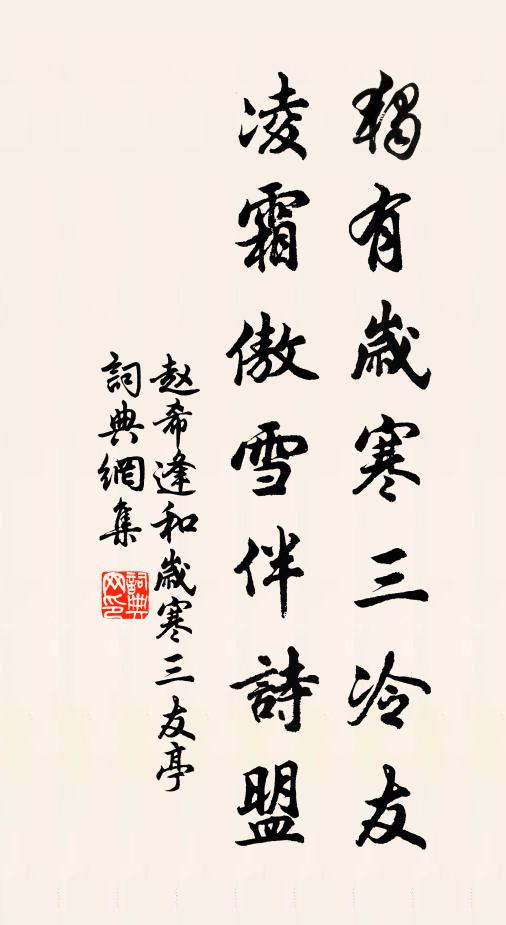 獨有歲寒三冷友
凌霜傲雪伴詩盟
赵希逢和歲寒三友亭
詞典網集
詞典网印